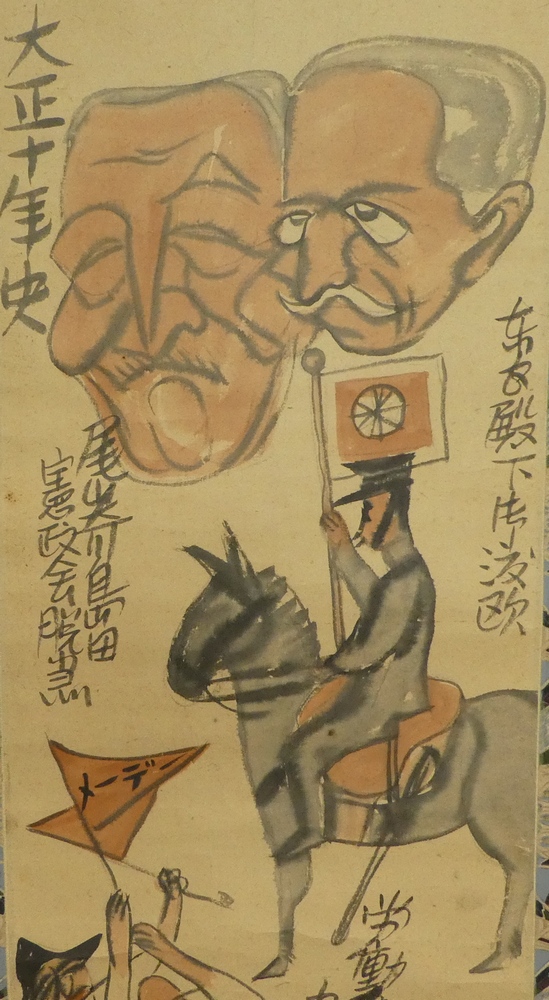 大正十年史
東宮殿下御渡欧
尾崎島田
憲政会脱党
メーデー
労働